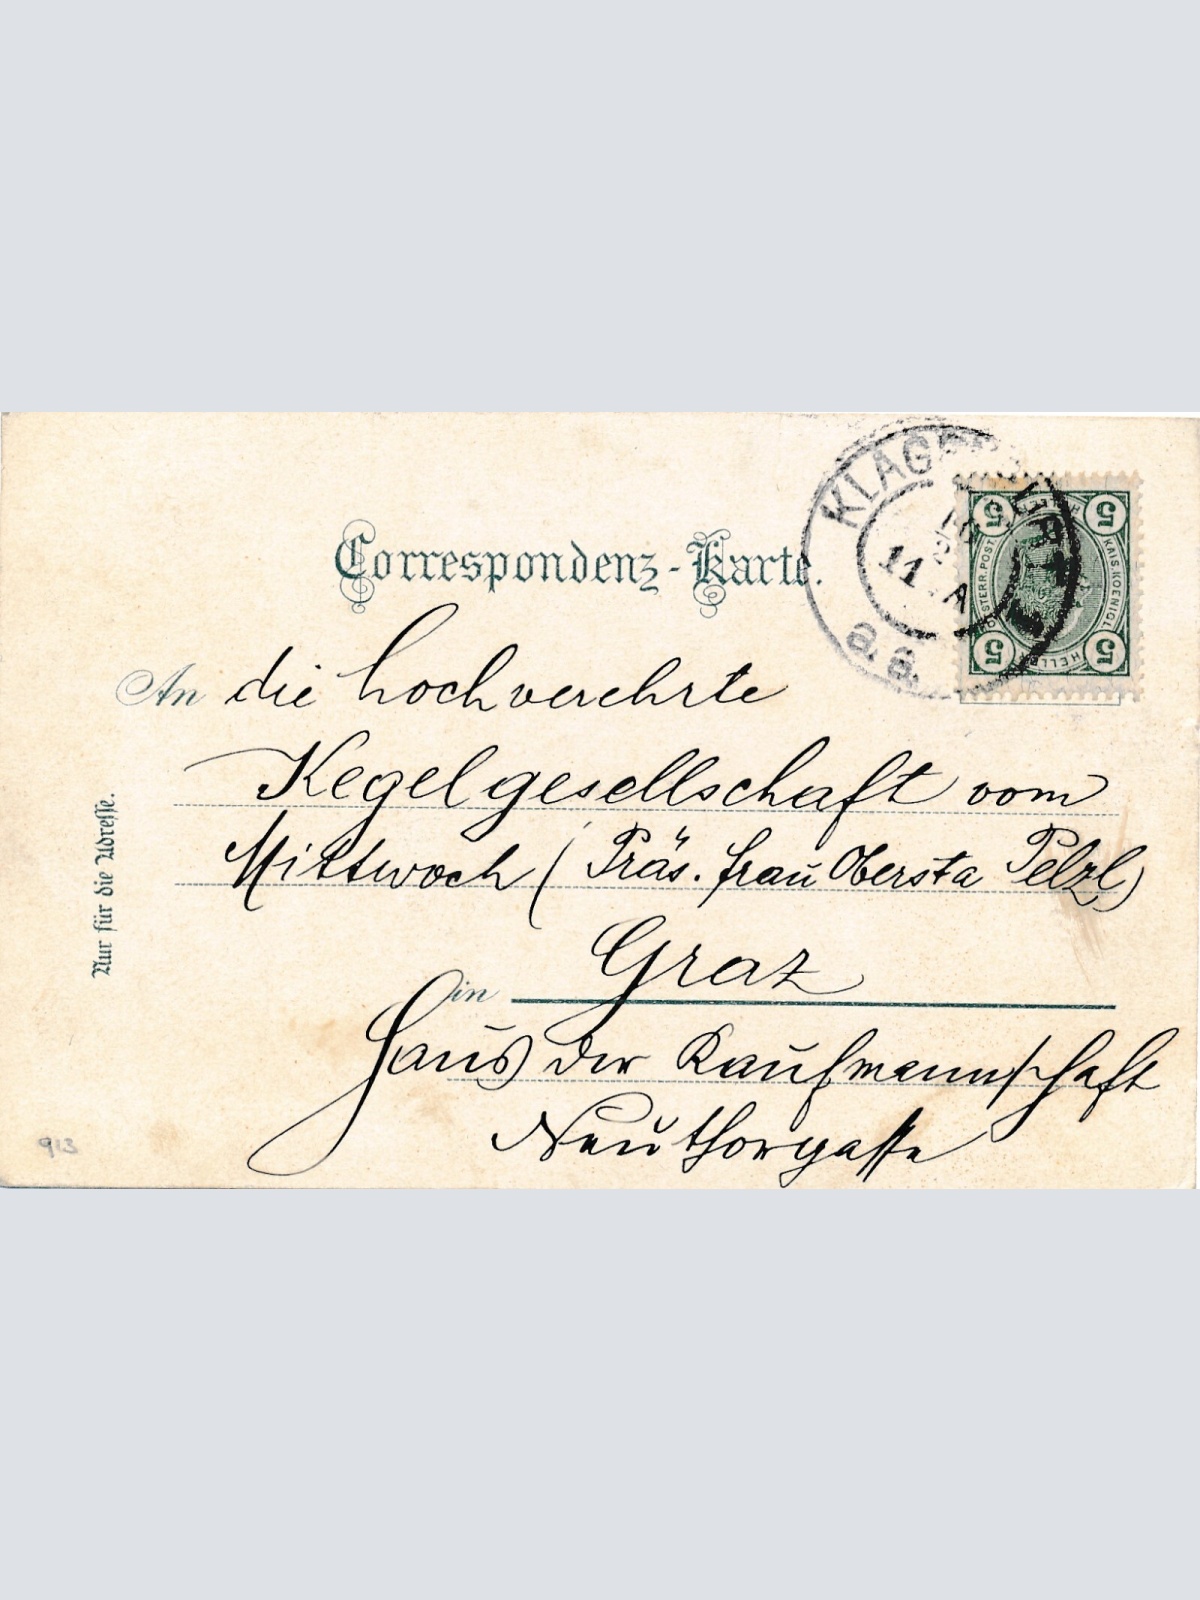 Correspondenz-Karte.
KLAG
11
A
a. a.
5 5
KAIS. KOENIGL.
OESTERR. POST
HELLER
5 5
An die hochverehrte
Kegelgesellschaft vom
Mittwoch (Präs. frau Obersta Pelzl)
in Graz
Haus der Kaufmannschaft
Neuthorgasse
Nur für die Adresse.
913